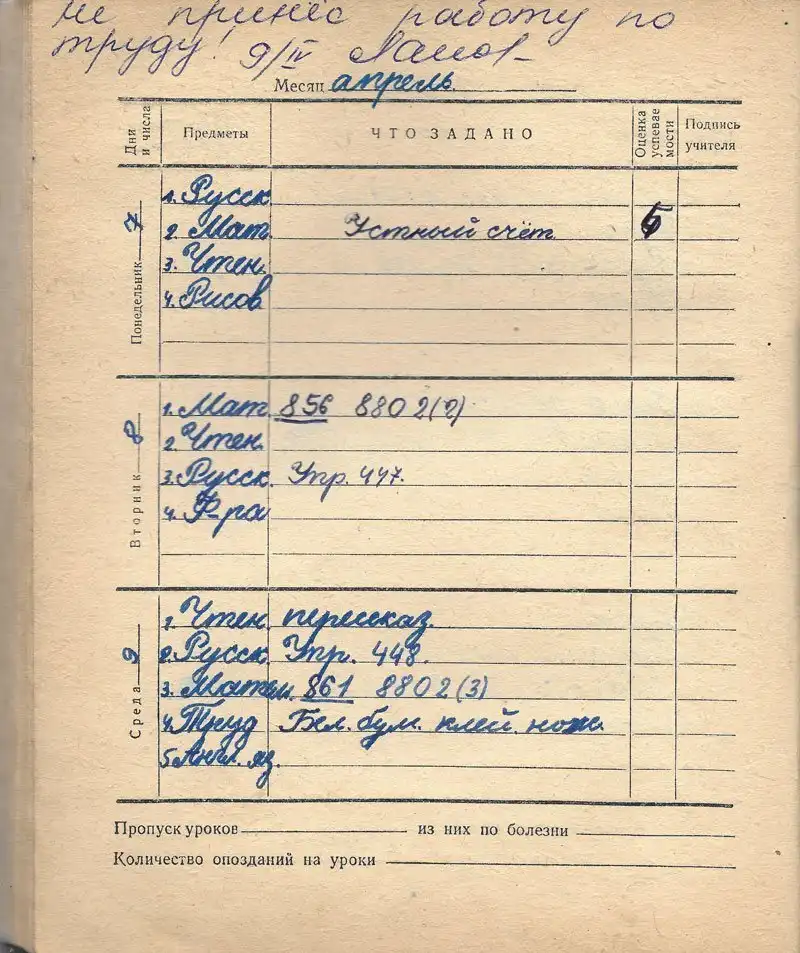 не принёс работу по
труду! 9/IV
Месяц апрель.
Дни и числа Предметы ЧТО ЗАДАНО Оценка успевае мости Подпись учителя
Понедельник 7
1. Русск.
2. Мат. Устный счёт. 5
3. Чтен.
4. Рисов
Вторник 8
1. Мат. 856 880 2(2)
2. Чтен.
3. Русск. Упр. 447.
4. Ф-ра
Среда 9
1. Чтен. пересказ.
2. Русск. Упр. 448.
3. Матем. 861 880 2(3)
4. Труд Бел. бум. клей. ножн.
5 Англ. яз.
Пропуск уроков из них по болезни
Количество опозданий на уроки